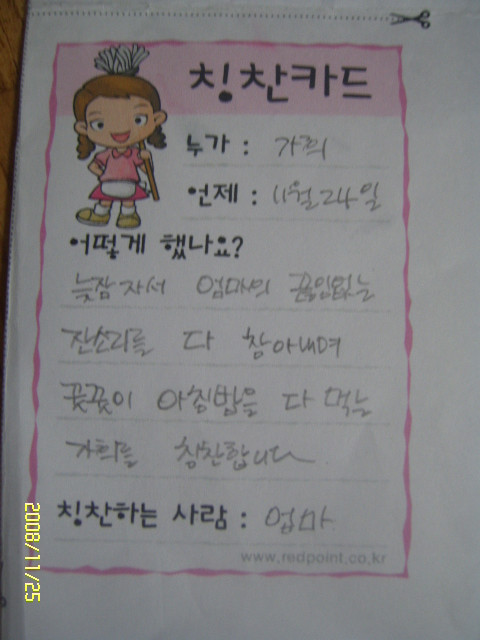 칭찬카드
누가 : 가희
언제 : 11월 24일
어떻게 했나요?
늦잠자서 엄마의 끊임없는
잔소리를 다 참아내며
꿋꿋이 아침밥을 다 먹는
가희를 칭찬합니다.
칭찬하는 사람 : 엄마
www.redpoint.co.kr
2008/11/25